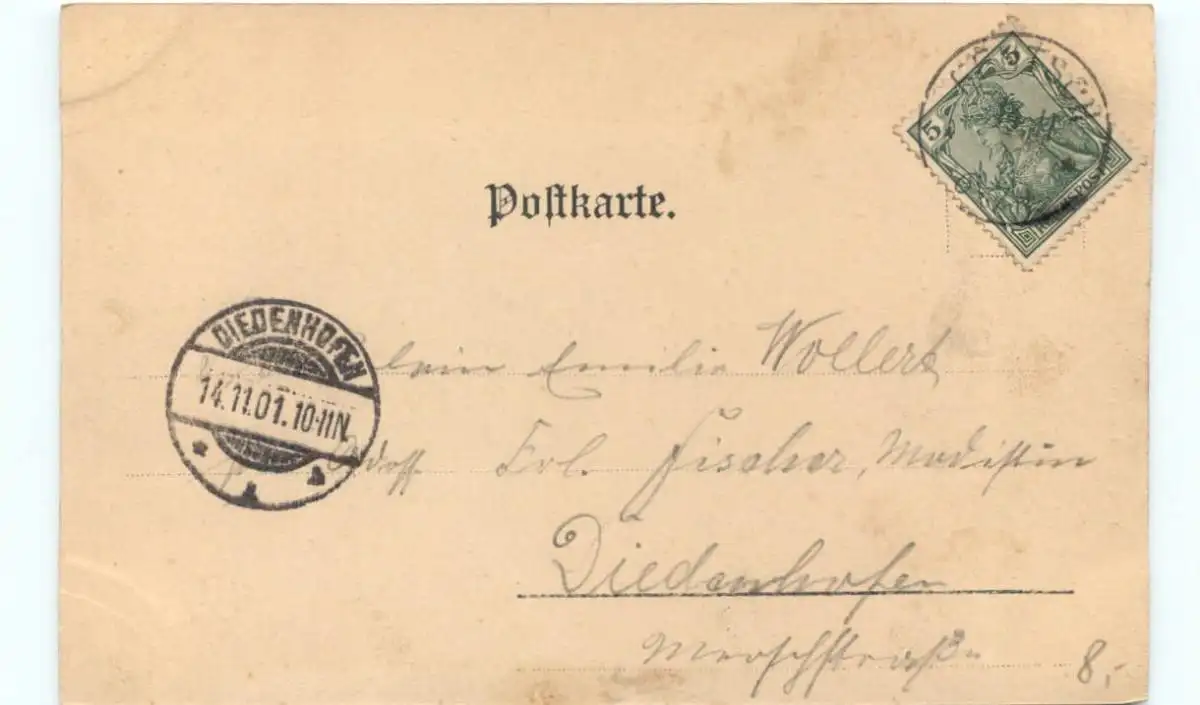 Postkarte.
5 5
DIEDENHOFEN
14.11.01.10-11N.
Emilie Wollert
Frl. Fischer, Modistin
Diedenhofen
8,-